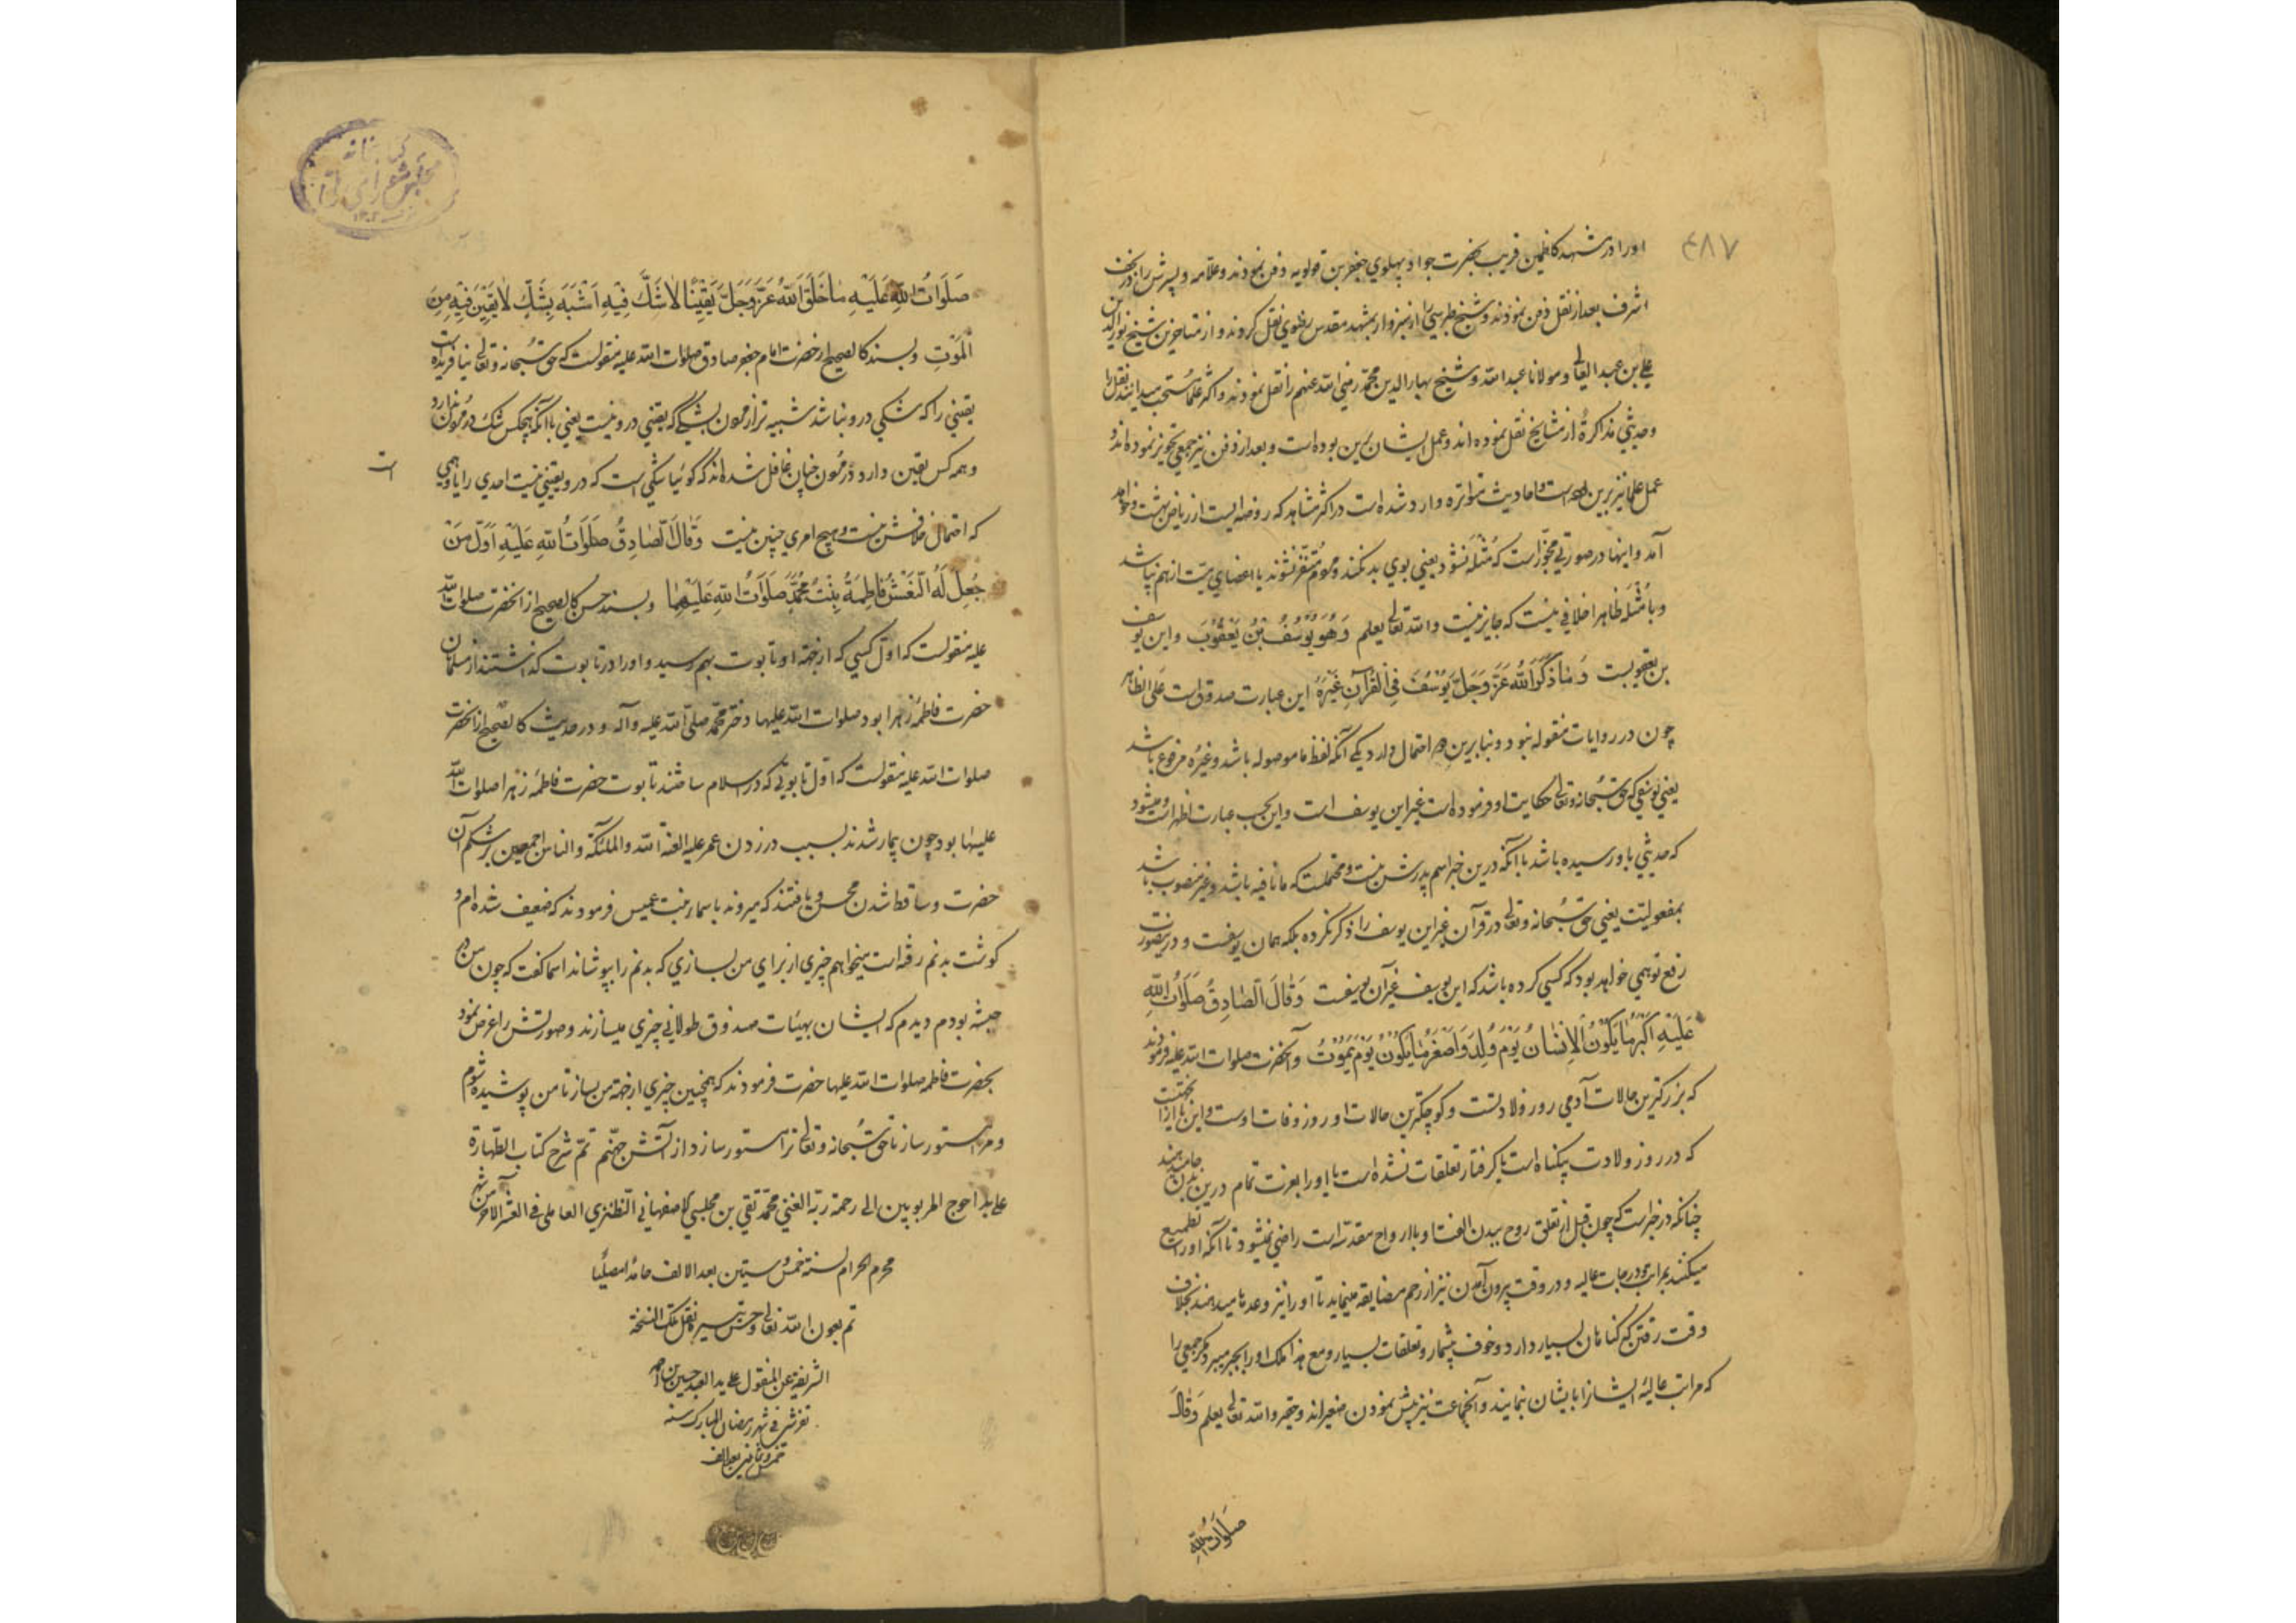 ۴۸۷
او را در مشهد کاظمین قریب بحضرت جواد و پهلوی جعفر بن قولویه دفن نمودند و علامه و پسرش را در نجف
اشرف بعد از نقل دفن نمودند و شیخ طبرسی را از سبزوار بمشهد مقدس رضوی نقل کردند و از متاخرین شیخ نورالدین
علی بن عبد العالی و مولانا عبد الله و شیخ بهاء الدین محمد رضی الله عنهم را نقل نمودند و اکثر علما مستحب میدانند نقل را
و حدیثی مذاکرة از مشایخ نقل نموده اند و عمل ایشان برین بوده است و بعد از دفن نیز جمعی تجویز نموده اند و
عمل علما نیز برین است و احادیث متواتره وارد شده است در اکثر مشاهد که روضه ایست از ریاض بهشت و خواهد
آمد و اینها در صورتی مجوز است که مُثله نشود یعنی بوی بد نکند و مردم متنفر نشوند یا اعضای میت از هم نپاشد
و با مُثله ظاهرا خلافی نیست که جایز نیست و الله تعالی یعلم وَهُوَ یُوسُفُ بْنُ یَعْقُوبَ و این یوسف
بن یعقوبست وَ مٰا ذَکَرَ اللهُ عَزَّ وَجَلَّ یُوسُفَ فِی الْقُرْآنِ غَیْرَهُ این عبارت صدوق است علی الظاهر
چون در روایات منقوله نبود و بنا برین دو احتمال دارد یکی آنکه لفظ ما موصوله باشد و غیره مرفوع باشد
یعنی یوسفی که حق سبحانه و تعالی حکایت او فرموده است غیر این یوسف است و این بحسب عبارت اظهر است و میشود
که حدیثی باو رسیده باشد با آنکه درین خبر اسم پدرش نیست و محتملست که ما نافیه باشد و غیر منصوب باشد
بمفعولیت یعنی حق سبحانه و تعالی در قرآن غیر این یوسف را ذکر نکرده بلکه همان یوسفست و درین صورت
رفع توهمی خواهد بود که کسی کرده باشد که این یوسف غیر آن یوسفست وَقٰالَ الصّٰادِقُ صَلَوٰاتُ اللهِ
عَلَیْهِ اَکْبَرُ مٰا یَکُونُ الْاِنْسٰانُ یَوْمَ وُلِدَ وَاَصْغَرُ مٰا یَکُونُ یَوْمَ یَمُوتُ و آنحضرت صلوات الله علیه فرمودند
که بزرگترین حالات آدمی روز ولادتست و کوچکترین حالات او روز وفات اوست و این یا ازانجهتست
که در روز ولادت بیگناه است یا گرفتار تعلقات نشده است یا او را بعزت تمام درین بدن جا میدهند
چنانکه در خبر است که چون قبل از تعلق روح ببدن الفت او با ارواح مقدسه است راضی نمیشود تا آنکه او را تطمیع
میکنند بمراتب و درجات عالیه و در وقت بیرون آمدن نیز از رحم مضایقه مینماید تا او را نیز وعدها میدهند بخلاف
وقت رفتن که گناهان بسیار دارد و خوف بیشمار و تعلقات بسیار و مع هذا ملک او را بجبر میبرد مگر جمعی را
که مراتب عالیه ایشانرا بایشان نمایند و آنجماعت نیز پیش نمودن صغیراند و حقیر و الله تعالی یعلم وَقٰالَ
صَلَوٰاتُ اللهِ
کتابخانه
مجلس شورای ملی
صَلَوٰاتُ اللهِ عَلَیْهِ مٰا خَلَقَ اللهُ عَزَّ وَجَلَّ یَقِینًا لٰا شَکَّ فِیهِ اَشْبَهَ بِشَکٍّ لٰا یَقِینَ فِیهِ مِنَ
الْمَوْتِ و بسند کالصحیح از حضرت امام جعفر صادق صلوات الله علیه منقولست که حق سبحانه و تعالی نیافریده است
یقینی را که شکی درو نباشد شبیه تر از مردن بشکی که یقینی درو نیست یعنی با آنکه هیچکس شک در مردن ندارد
و همه کس یقین دارد و در مردن چنان غافل شده اند که گوئیا شکی است که درو یقینی نیست احدی را یا وهمی
است
که احتمال خلافش نیست و هیچ امری چنین نیست وَقٰالَ الصّٰادِقُ صَلَوٰاتُ اللهِ عَلَیْهِ اَوَّلُ مَنْ
جُعِلَ لَهُ النَّعْشُ فٰاطِمَةُ بِنْتُ مُحَمَّدٍ صَلَوٰاتُ اللهِ عَلَیْهِمٰا و بسند حسن کالصحیح از آنحضرت صلوات الله
علیه منقولست که اول کسی که از جهة او تابوت بهم رسید و او را در تابوت گذاشتند از مسلمانان
حضرت فاطمه زهرا بود صلوات الله علیها دختر محمد صلی الله علیه وآله و در حدیث کالصحیح از آنحضرت
صلوات الله علیه منقولست که اول تابوتی که در اسلام ساختند تابوت حضرت فاطمه زهرا صلوات الله
علیها بود چون بیمار شدند بسبب در زدن عمر علیه لعنة الله والملئکة والناس اجمعین بر شکم آن
حضرت و ساقط شدن محسن و یافتند که میروند باسماء بنت عمیس فرمودند که ضعیف شده ام و
گوشت بدنم رفته است میخواهم چیزی از برای من بسازی که بدنم را بپوشاند اسما گفت که چون من در
حبشه بودم دیدم که ایشان بهیئات صندوق طولانی چیزی میسازند و صورتش را عرض نمود
بحضرت فاطمه صلوات الله علیها حضرت فرمودند که همچنین چیزی از جهة من بساز تا من پوشیده شوم
و مرا مستور ساز تا حق سبحانه و تعالی ترا مستور سازد از آتش جهنم تمّ شرح کتاب الطهارة
علی ید احوج المربوبین الی رحمة ربه الغنی محمد تقی بن مجلسی الاصفهانی النطنزی العاملی فی العشر الآخر من شهر
محرم الحرام لسنة خمس و ستین بعد الالف حامدًا مصلّیًا
تم بعون الله تعالی و حسن تیسیره نقل تلک النسخة
الشریفة عن المنقول علی ید العبد حسین بن
تفرشی فی شهر رمضان المبارک سنه
خمس و ثمانین بعد الالف